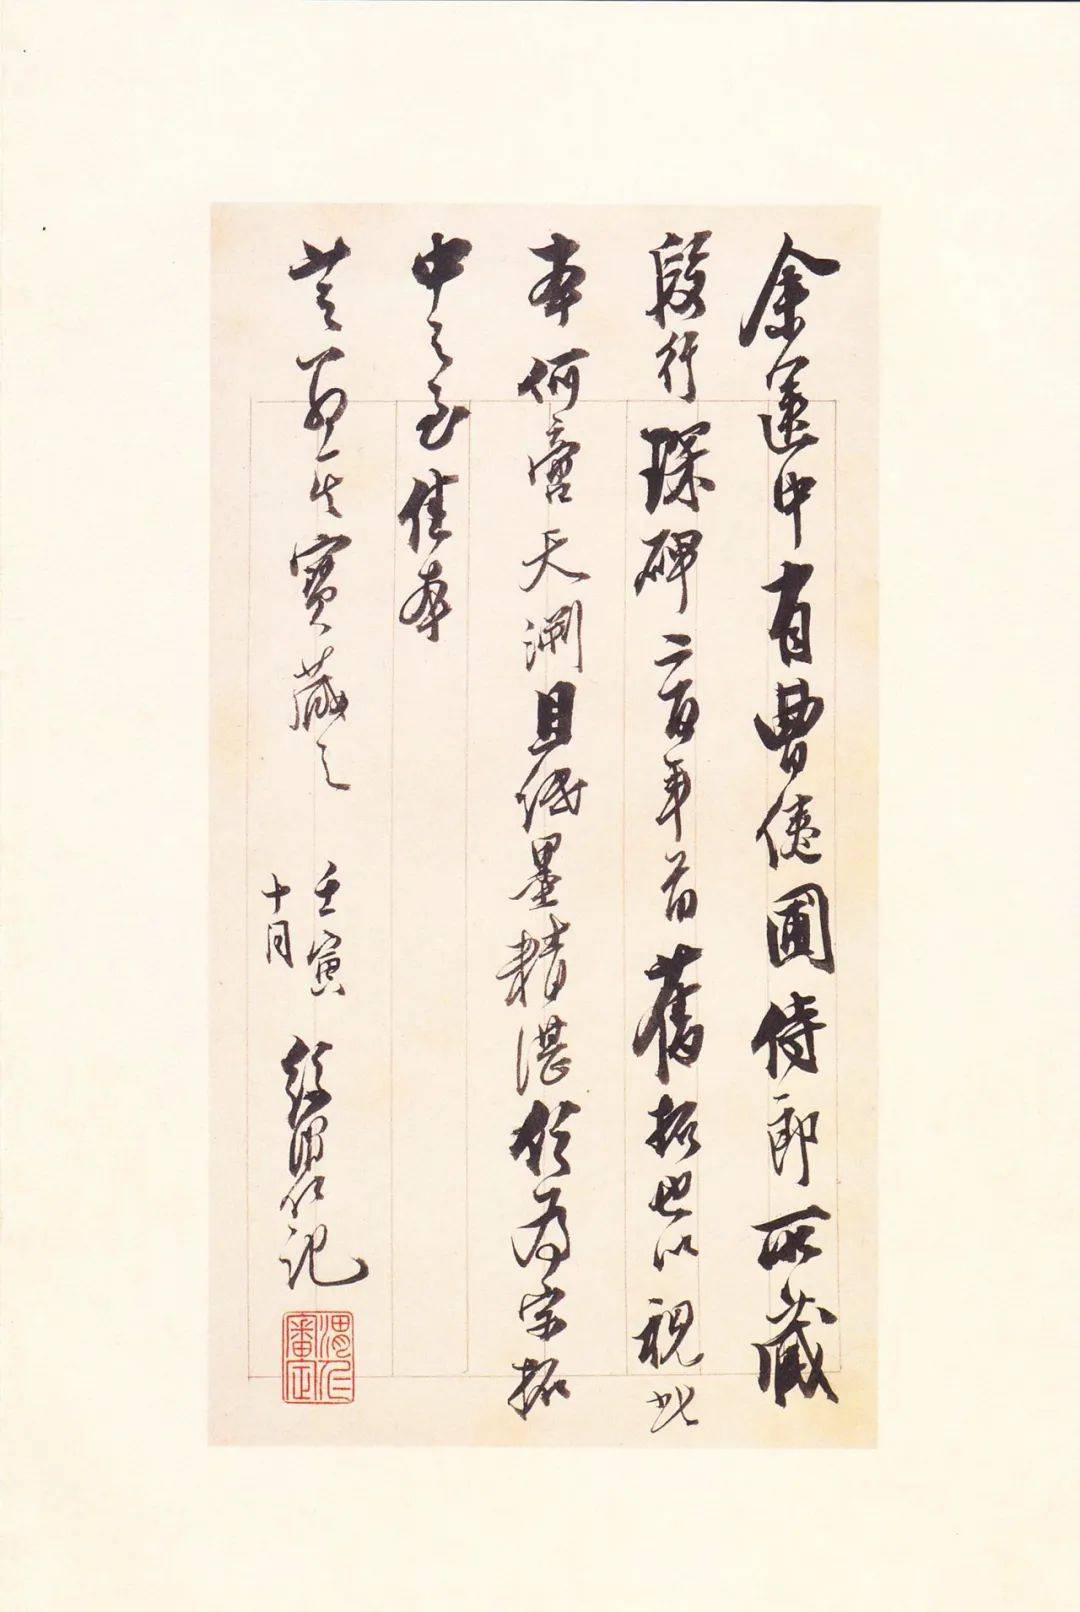 余篋中有曹倦圃侍郎所藏
段行琛碑二百年前舊拓也以視此
本何啻天淵且紙墨精湛為宋拓
中之至佳本
先生寶藏之
壬寅
十月
徐渭仁記
渭仁
審定